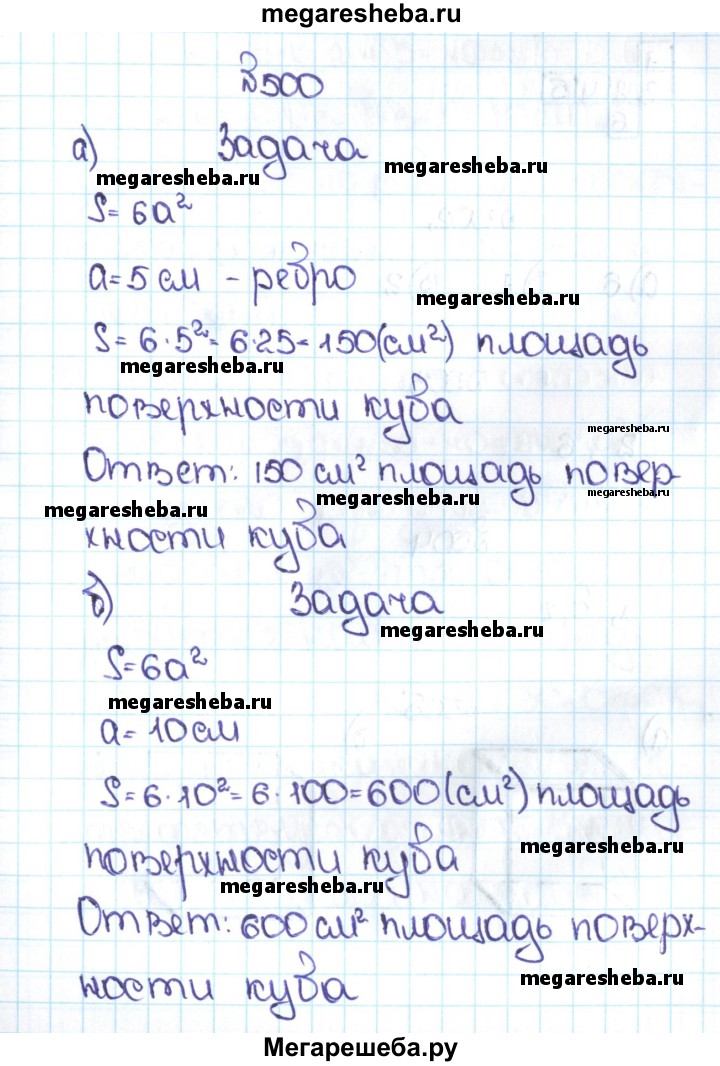 megaresheba.ru
№500
а) Задача
megaresheba.ru
megaresheba.ru
S= 6a²
a=5 см - ребро
megaresheba.ru
S= 6·5²= 6·25= 150(см²) площадь
megaresheba.ru
поверхности куба
megaresheba.ru
Ответ: 150 см² площадь повер-
megaresheba.ru
megaresheba.ru
megaresheba.ru
хности куба
б) Задача
megaresheba.ru
S=6a²
megaresheba.ru
a= 10см
S=6·10²= 6·100=600(см²) площадь
поверхности куба
megaresheba.ru
megaresheba.ru
Ответ: 600 см² площадь поверх-
ности куба
megaresheba.ru
Мегарешеба.ру